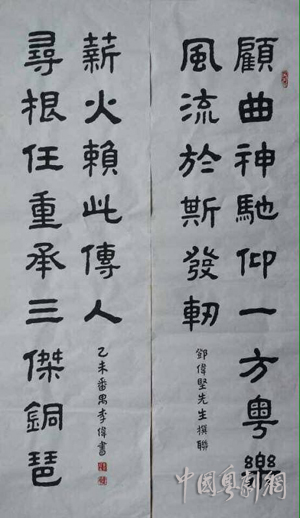 顧曲神馳仰一方粵樂
風流於斯發軔
鄧偉堅先生撰聯
尋根任重承三傑銅琶
薪火賴此傳人
乙未番禺李偉書
中國粵劇網